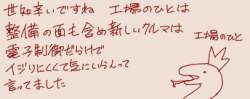 世知辛いですね 工場のひとは
整備の面も含め新しいクルマは
電子制御だらけで
イジリにくくて気にいらんって
言ってました
工場のひと